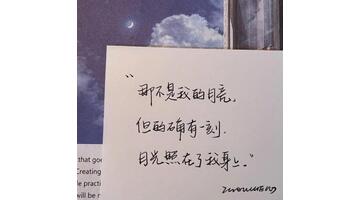 “那不是我的月亮.
但的确有一刻.
月光照在了我身上。”
that goe
Creating
le practi
will be r